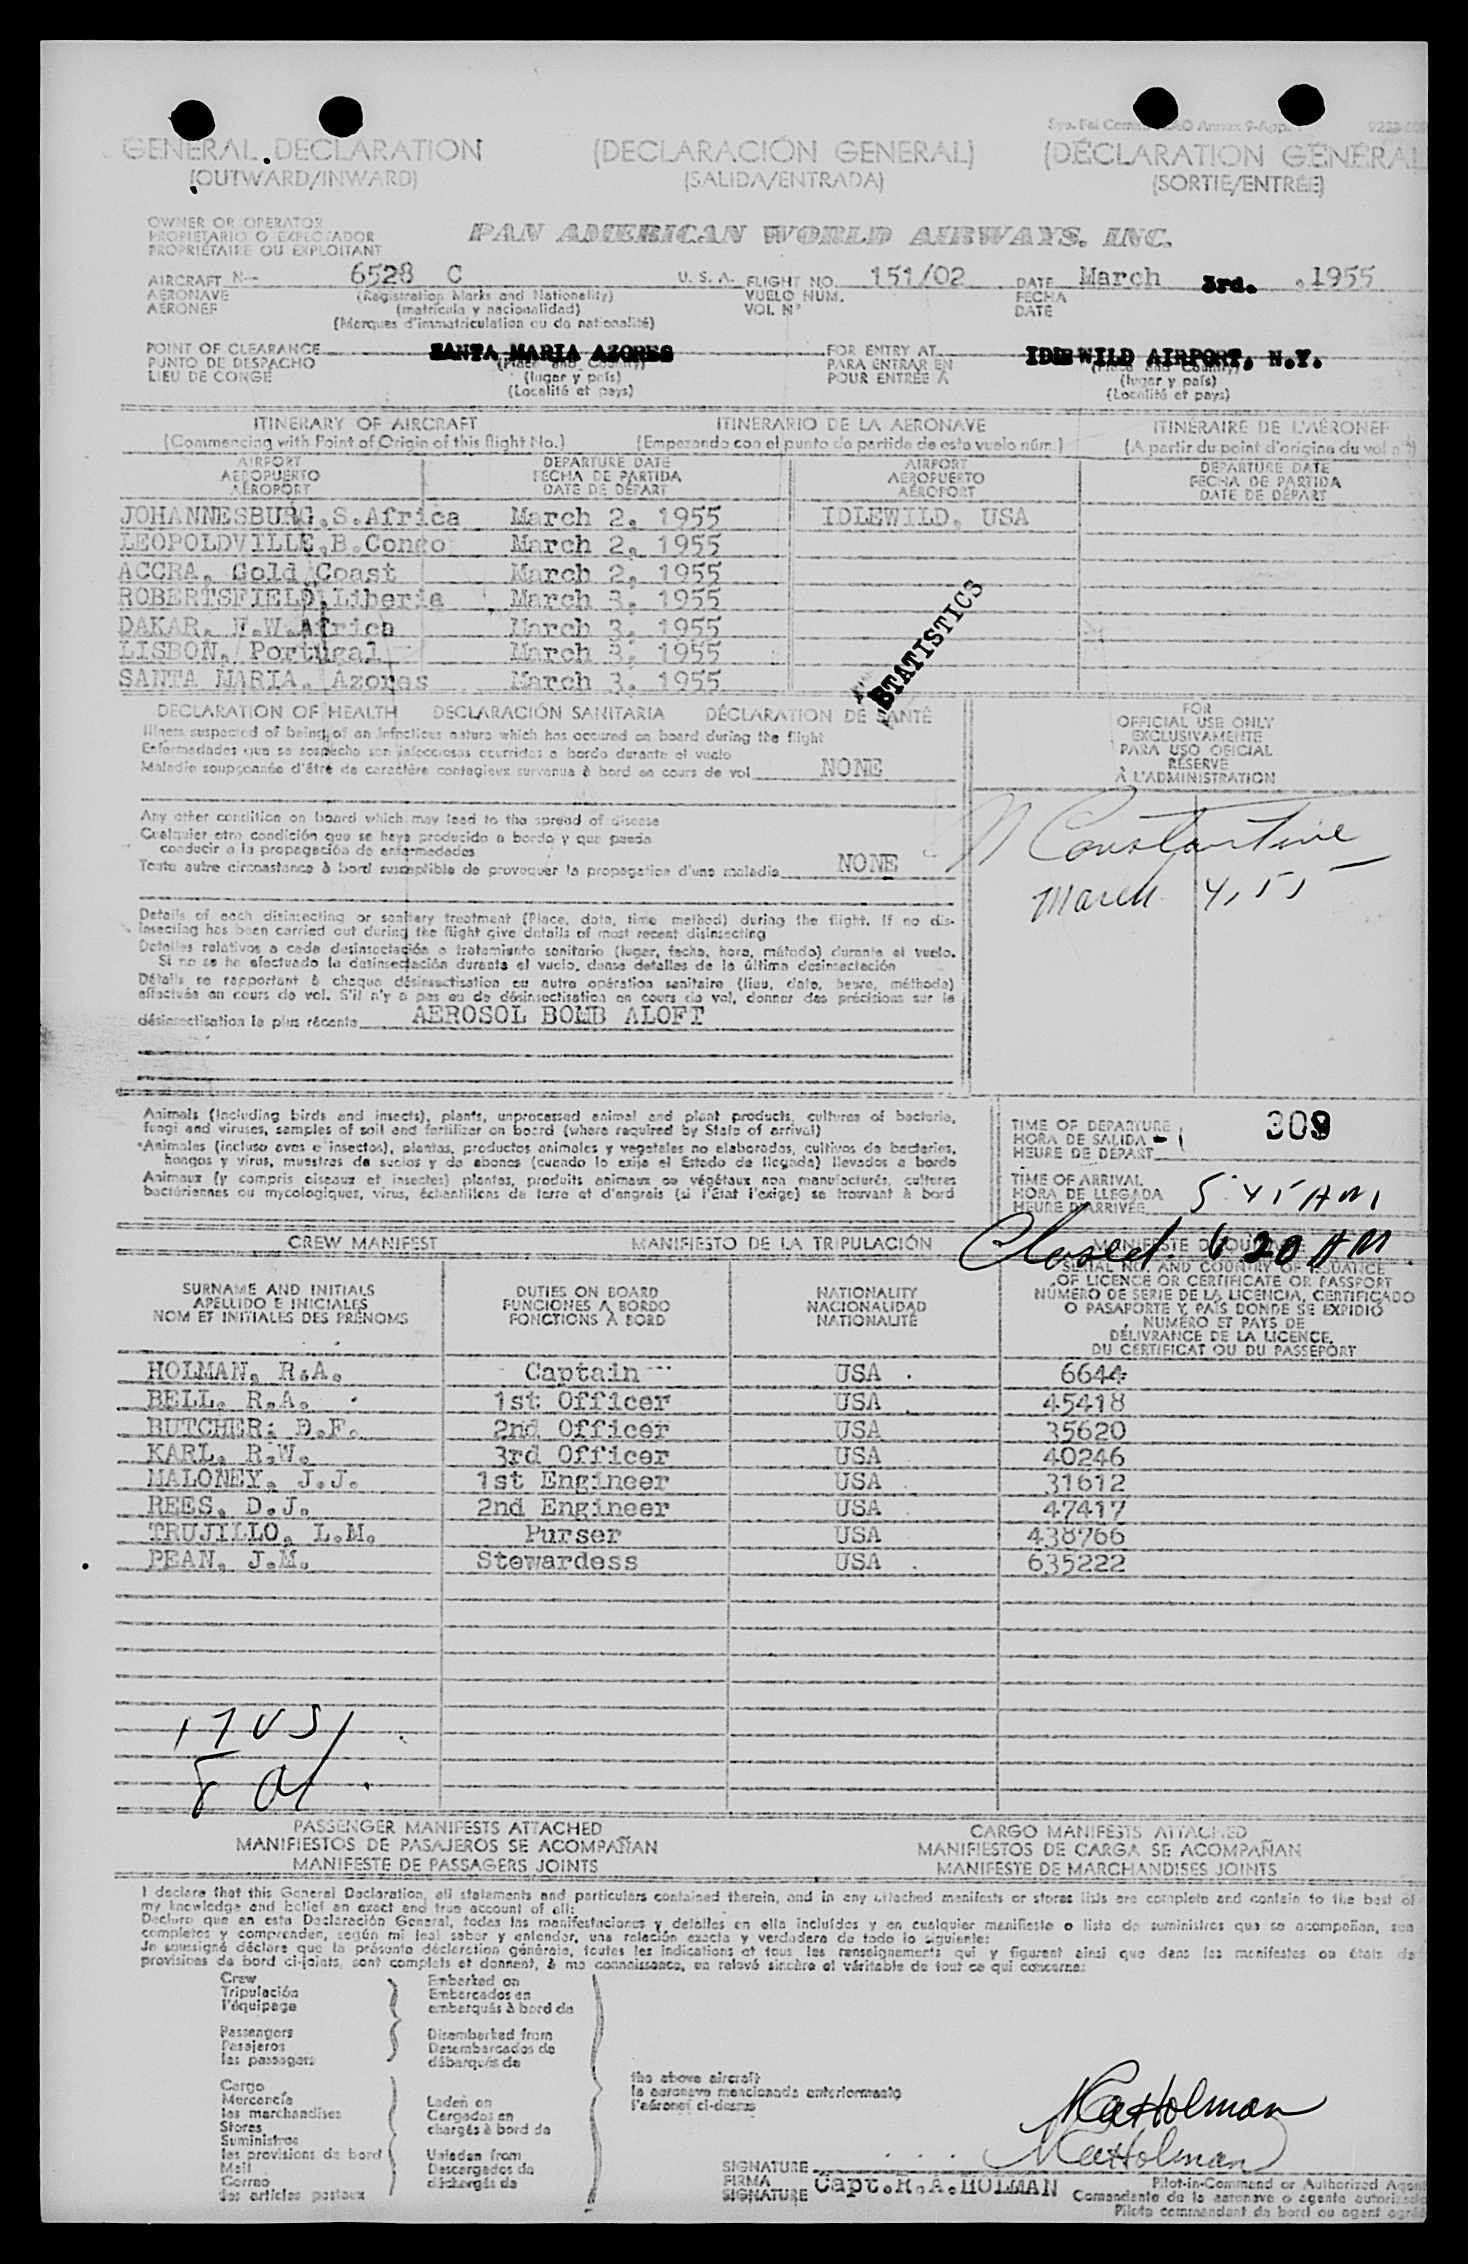 GENERAL DECLARATION (DECLARACIÓN GENERAL) (DÉCLARATION GÉNÉRAL
(OUTWARD/INWARD) (SALIDA/ENTRADA) (SORTIE/ENTRÉE)
OWNER OR OPERATOR
PROPIETARIO O EXPLOTADOR
PROPRIÉTAIRE OU EXPLOITANT
PAN AMERICAN WORLD AIRWAYS. INC.
AIRCRAFT N-- 6528 C U. S. A. FLIGHT NO. 151/02 DATE March 3rd. , 1955
AERONAVE (Registration Marks and Nationality) VUELO NUM. FECHA
AERONEF (matrícula y nacionalidad) VOL N° DATE
(Marques d'immatriculation ou de nationalité)
POINT OF CLEARANCE SANTA MARIA AZORES FOR ENTRY AT IDLEWILD AIRPORT, N.Y.
PUNTO DE DESPACHO (Place and Country) PARA ENTRAR EN (Place and Country)
LIEU DE CONGÉ (lugar y país) POUR ENTRÉE À (lugar y país)
(Localité et pays) (Localité et pays)
ITINERARY OF AIRCRAFT ITINERARIO DE LA AERONAVE ITINÉRAIRE DE L'AÉRONEF
(Commencing with Point of Origin of this flight No.) (Empezando con el punto de partida de este vuelo núm.) (A partir du point d'origine du vol n°)
AIRPORT DEPARTURE DATE AIRPORT DEPARTURE DATE
AEROPUERTO FECHA DE PARTIDA AEROPUERTO FECHA DE PARTIDA
AÉROPORT DATE DE DÉPART AÉROPORT DATE DE DÉPART
JOHANNESBURG,S.Africa March 2, 1955 IDLEWILD, USA
LEOPOLDVILLE,B.Congo March 2, 1955
ACCRA, Gold Coast March 2, 1955
ROBERTSFIELD,Liberia March 3, 1955
DAKAR, F.W.Africa March 3, 1955
LISBON, Portugal March 3, 1955
SANTA MARIA, Azores March 3, 1955
STATISTICS
DECLARATION OF HEALTH DECLARACIÓN SANITARIA DÉCLARATION DE SANTÉ
Illness suspected of being of an infectious nature which has occured on board during the flight
Enfermedades que se sospecha son infecciosas ocurridas a bordo durante el vuelo
Maladie soupçonnée d'être de caractère contagieux survenue à bord en cours de vol NONE
FOR
OFFICIAL USE ONLY
EXCLUSIVAMENTE
PARA USO OFICIAL
RESERVÉ
À L'ADMINISTRATION
Any other condition on board which may lead to the spread of disease
Cualquier otra condición que se haya producido a bordo y que pueda
conducir a la propagación de enfermedades
Toute autre circonstance à bord susceptible de provoquer la propagation d'une maladie NONE
Constantine
March 4, 55
Details of each disinsecting or sanitary treatment (Place, date, time method) during the flight. If no dis-
insecting has been carried out during the flight give details of most recent disinsecting
Detalles relativos a cada desinsectación o tratamiento sanitario (lugar, fecha, hora, método) durante el vuelo.
Si no se ha efectuado la desinsectación durante el vuelo, dense detalles de la última desinsectación
Détails se rapportant à chaque désinsectisation ou autre opération sanitaire (lieu, date, heure, méthode)
effectuée en cours de vol. S'il n'y a pas eu de désinsectisation en cours de vol, donner des précisions sur la
désinsectisation la plus récente AEROSOL BOMB ALOFT
Animals (including birds and insects), plants, unprocessed animal and plant products, cultures of bacteria,
fungi and viruses, samples of soil and fertilizer on board (where required by State of arrival)
*Animales (incluso aves e insectos), plantas, productos animales y vegetales no elaborados, cultivos de bacterias,
hongos y virus, muestras de suelos y de abonos (cuando lo exija el Estado de llegada) llevados a bordo
Animaux (y compris oiseaux et insectes) plantes, produits animaux ou végétaux non manufacturés, cultures
bactériennes ou mycologiques, virus, échantillons de terre et d'engrais (si l'État l'exige) se trouvant à bord
TIME OF DEPARTURE
HORA DE SALIDA 309
HEURE DE DÉPART
TIME OF ARRIVAL
HORA DE LLEGADA 5:45 AM
HEURE D'ARRIVÉE
Closed. 620 AM
CREW MANIFEST MANIFIESTO DE LA TRIPULACIÓN
SURNAME AND INITIALS DUTIES ON BOARD NATIONALITY SERIAL NO. AND COUNTRY OF ISSUANCE
APELLIDO E INICIALES FUNCIONES A BORDO NACIONALIDAD OF LICENCE OR CERTIFICATE OR PASSPORT
NOM ET INITIALES DES PRÉNOMS FONCTIONS À BORD NATIONALITÉ NUMERO DE SERIE DE LA LICENCIA, CERTIFICADO
O PASAPORTE Y PAÍS DONDE SE EXPIDIÓ
NUMÉRO ET PAYS DE
DÉLIVRANCE DE LA LICENCE,
DU CERTIFICAT OU DU PASSEPORT
HOLMAN, R.A. Captain USA 6644
BELL, R.A. 1st Officer USA 45418
BUTCHER, D.F. 2nd Officer USA 35620
KARL, R.W. 3rd Officer USA 40246
MALONEY, J.J. 1st Engineer USA 31612
REES, D.J. 2nd Engineer USA 47417
TRUJILLO, L.M. Purser USA 438766
PEAN, J.M. Stewardess USA 635222
17 US
8 al
PASSENGER MANIFESTS ATTACHED CARGO MANIFESTS ATTACHED
MANIFIESTOS DE PASAJEROS SE ACOMPAÑAN MANIFIESTOS DE CARGA SE ACOMPAÑAN
MANIFESTE DE PASSAGERS JOINTS MANIFESTE DE MARCHANDISES JOINTS
I declare that this General Declaration, all statements and particulars contained therein, and in any attached manifests or stores lists are complete and contain to the best of
my knowledge and belief an exact and true account of all:
Declaro que en esta Declaración General, todas las manifestaciones y detalles en ella incluídos y en cualquier manifiesto o lista de suministros que se acompañan, son
completos y comprenden, según mi leal saber y entender, una relación exacta y verdadera de todo lo siguiente:
Je soussigné déclare que la présente déclaration générale, toutes les indications et tous les renseignements qui y figurent ainsi que dans les manifestes ou états de
provisions de bord ci-joints, sont complets et donnent, à ma connaissance, un relevé sincère et véritable de tout ce qui concerne:
Crew Embarked on
Tripulación Embarcados en
l'équipage embarqués à bord de
Passengers Disembarked from
Pasajeros Desembarcados de
les passagers débarqués de
the above aircraft
la aeronave mencionada anteriormente
l'aéronef ci-dessus
Cargo
Mercancía Laden on
les marchandises Cargados en
Stores chargés à bord de
Suministros
les provisions de bord Unladen from
Mail Descargados de
Correo déchargés de
des articles postaux
RaHolman
RaHolman
SIGNATURE
FIRMA Capt.R.A.HOLMAN Pilot-in-Command or Authorized Agent
SIGNATURE Comandante de la aeronave o agente autorizado
Pilote commandant de bord ou agent agréé